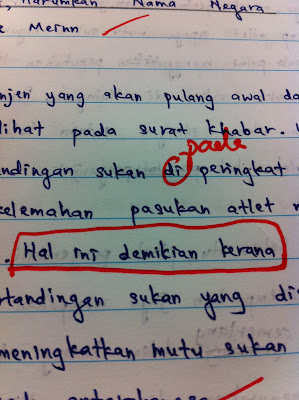 , Harumkan Nama Negara
Meinn
njen yang akan pulang awal da
lihat pada surat khabar.
pada
ndingan sukan di peringkat
elemahan pasukan atlet
. Hal ini demikian kerana
rtandingan sukan yang di
meningkatkan mutu sukan